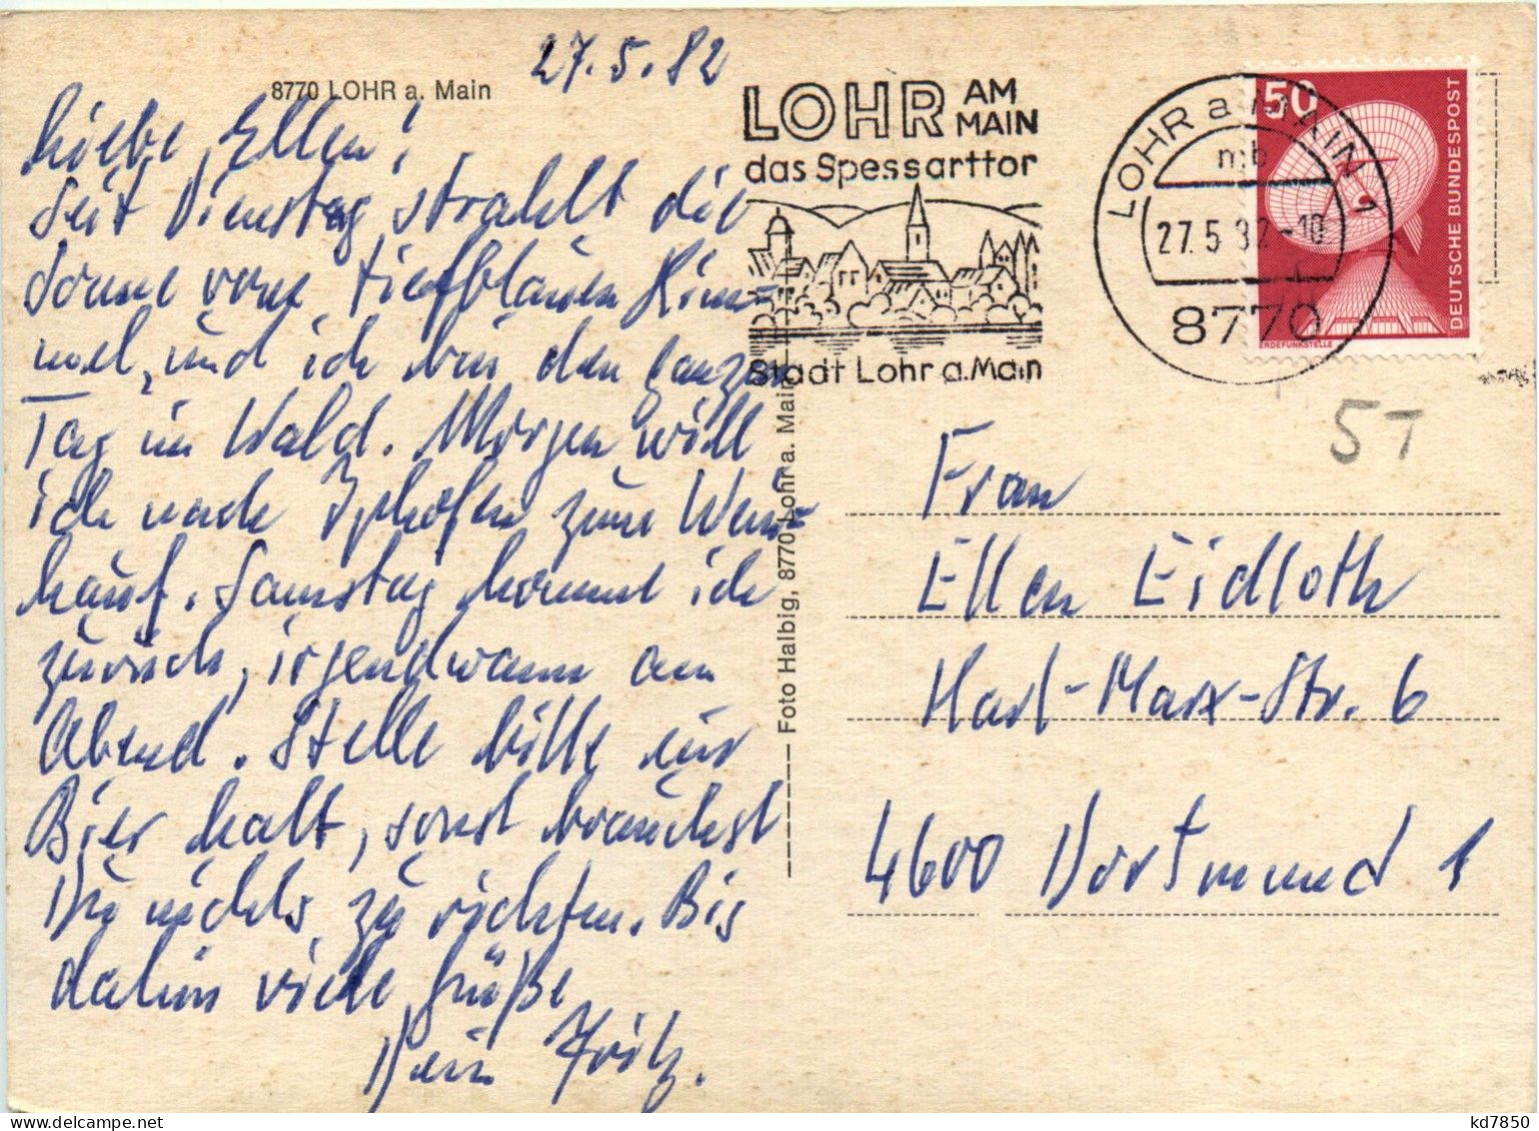 27.5.82
8770 LOHR a. Main
Liebe Ellen!
Seit Dienstag strahlt die
Sonne vom tiefblauen Him-
mel, und ich bin den ganzen
Tag im Wald. Morgen will
ich nach Iphofen zum Wein-
kauf. Samstag komme ich
zurück, irgendwann am
Abend. Stelle bitte ein
Bier kalt, sonst brauchst
Du nichts zu richten. Bis
dahin viele Grüße
Dein Fritz.
Foto Halbig, 8770 Lohr a. Main
LOHR AM MAIN
das Spessarttor
Stadt Lohr a.Main
LOHR a MAIN 1
mb
27.5.82-10
8770
50
DEUTSCHE BUNDESPOST
ERDEFUNKSTELLE
5T
Frau
Ellen Eidloth
Karl-Marx-Str. 6
4600 Dortmund 1
kd7850